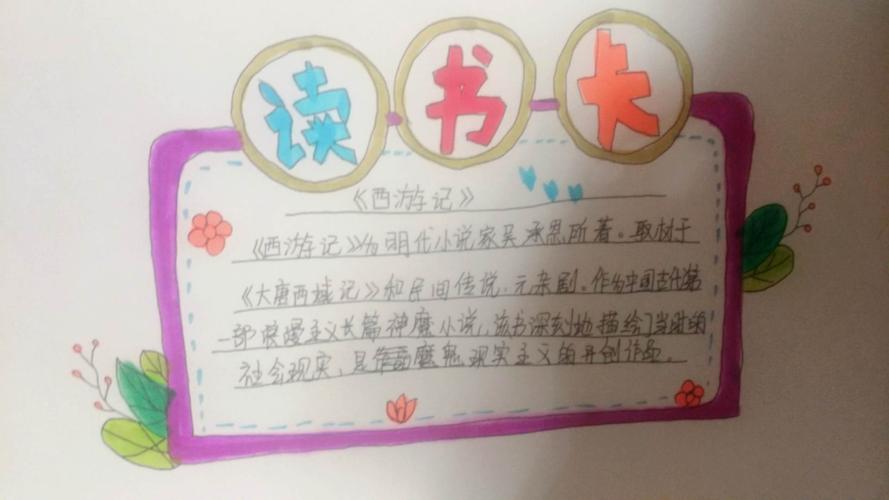 读书卡
《西游记》
《西游记》为明代小说家吴承恩所著。取材于
《大唐西域记》和民间传说、元杂剧。作为中国古代第
一部浪漫主义长篇神魔小说,该书深刻地描绘了当时的
社会现实,是魔幻现实主义的开创作品。